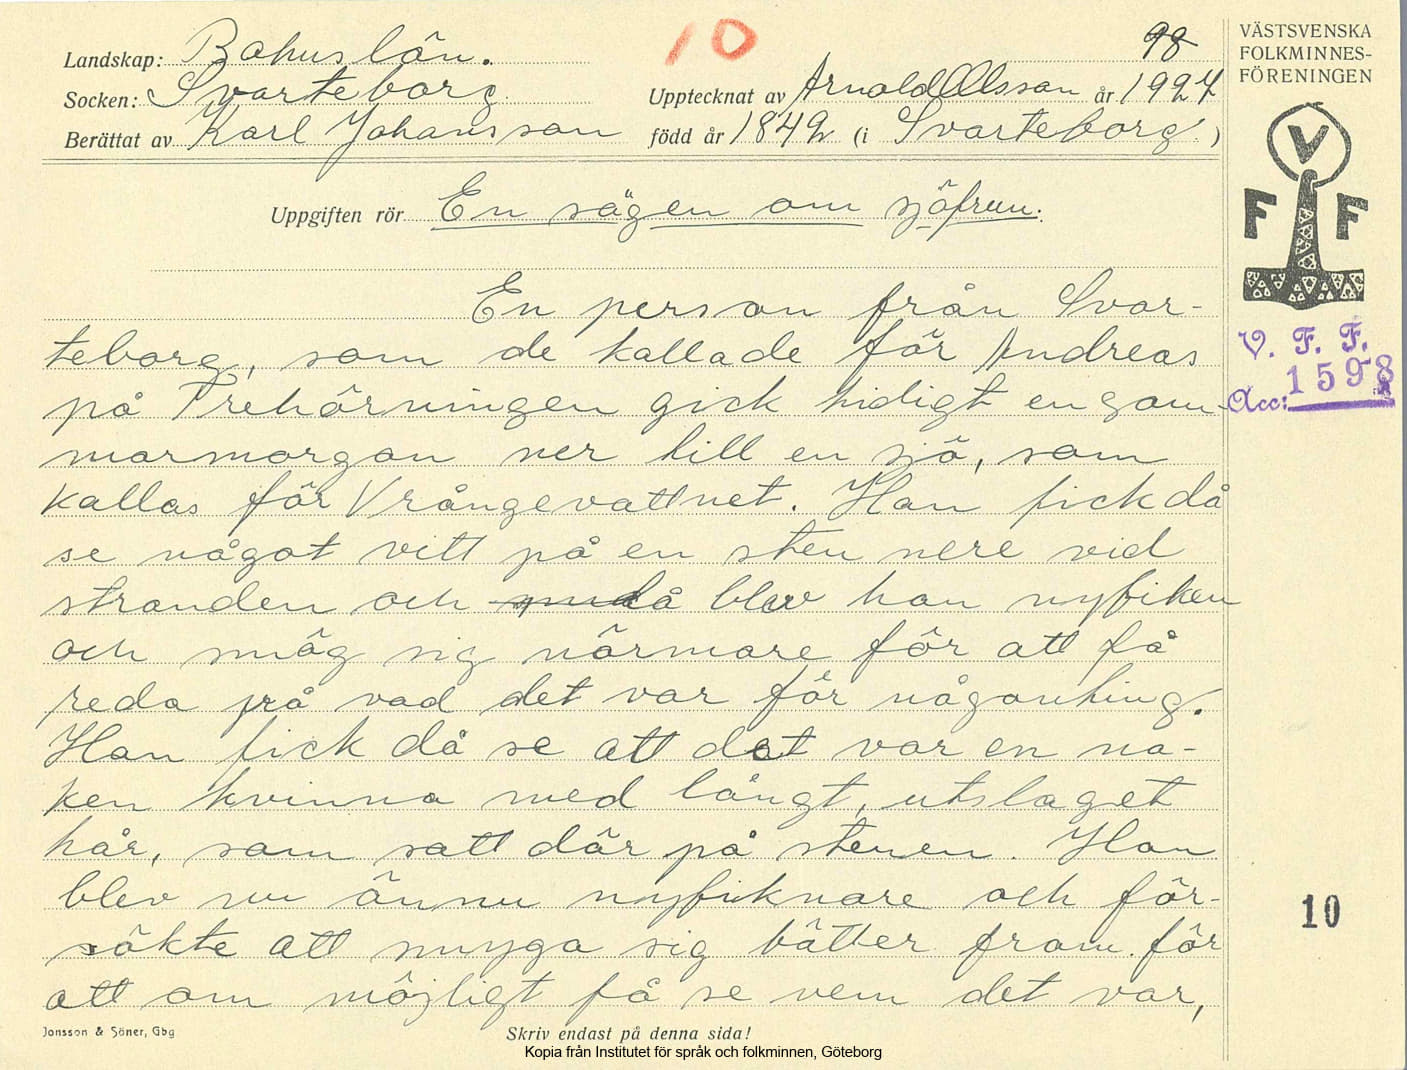 10
98
Landskap: Bohuslän.
Socken: Svarteborg
Upptecknat av Arnold Olsson år 1927
Berättat av Karl Johansson född år 1849 (i Svarteborg.)
Uppgiften rör En sägen om sjöfrun.
En person från Svar-
teborg, som de kallade för Andreas
på Trehörningen gick tidigt en som-
marmorgon ner till en sjö, som
kallas för Vrångevattnet. Han fick då
se något vitt på en sten nere vid
stranden och då blev han nyfiken
och smög sig närmare för att få
reda på vad det var för någonting.
Han fick då se att det var en na-
ken kvinna med långt, utslaget
hår, som satt där på stenen. Han
blev nu ännu nyfiknare och för-
sökte att smyga sig bätter fram för
att om möjligt få se vem det var,
Jonsson & Söner, Gbg
Skriv endast på denna sida!
Kopia från Institutet för språk och folkminnen, Göteborg
VÄSTSVENSKA
FOLKMINNES-
FÖRENINGEN
V
F F
V. F. F.
Acc: 1598
10